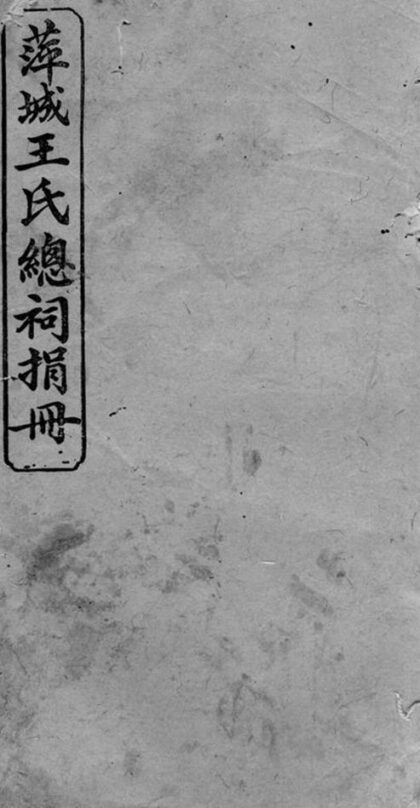 萍城王氏總祠捐冊